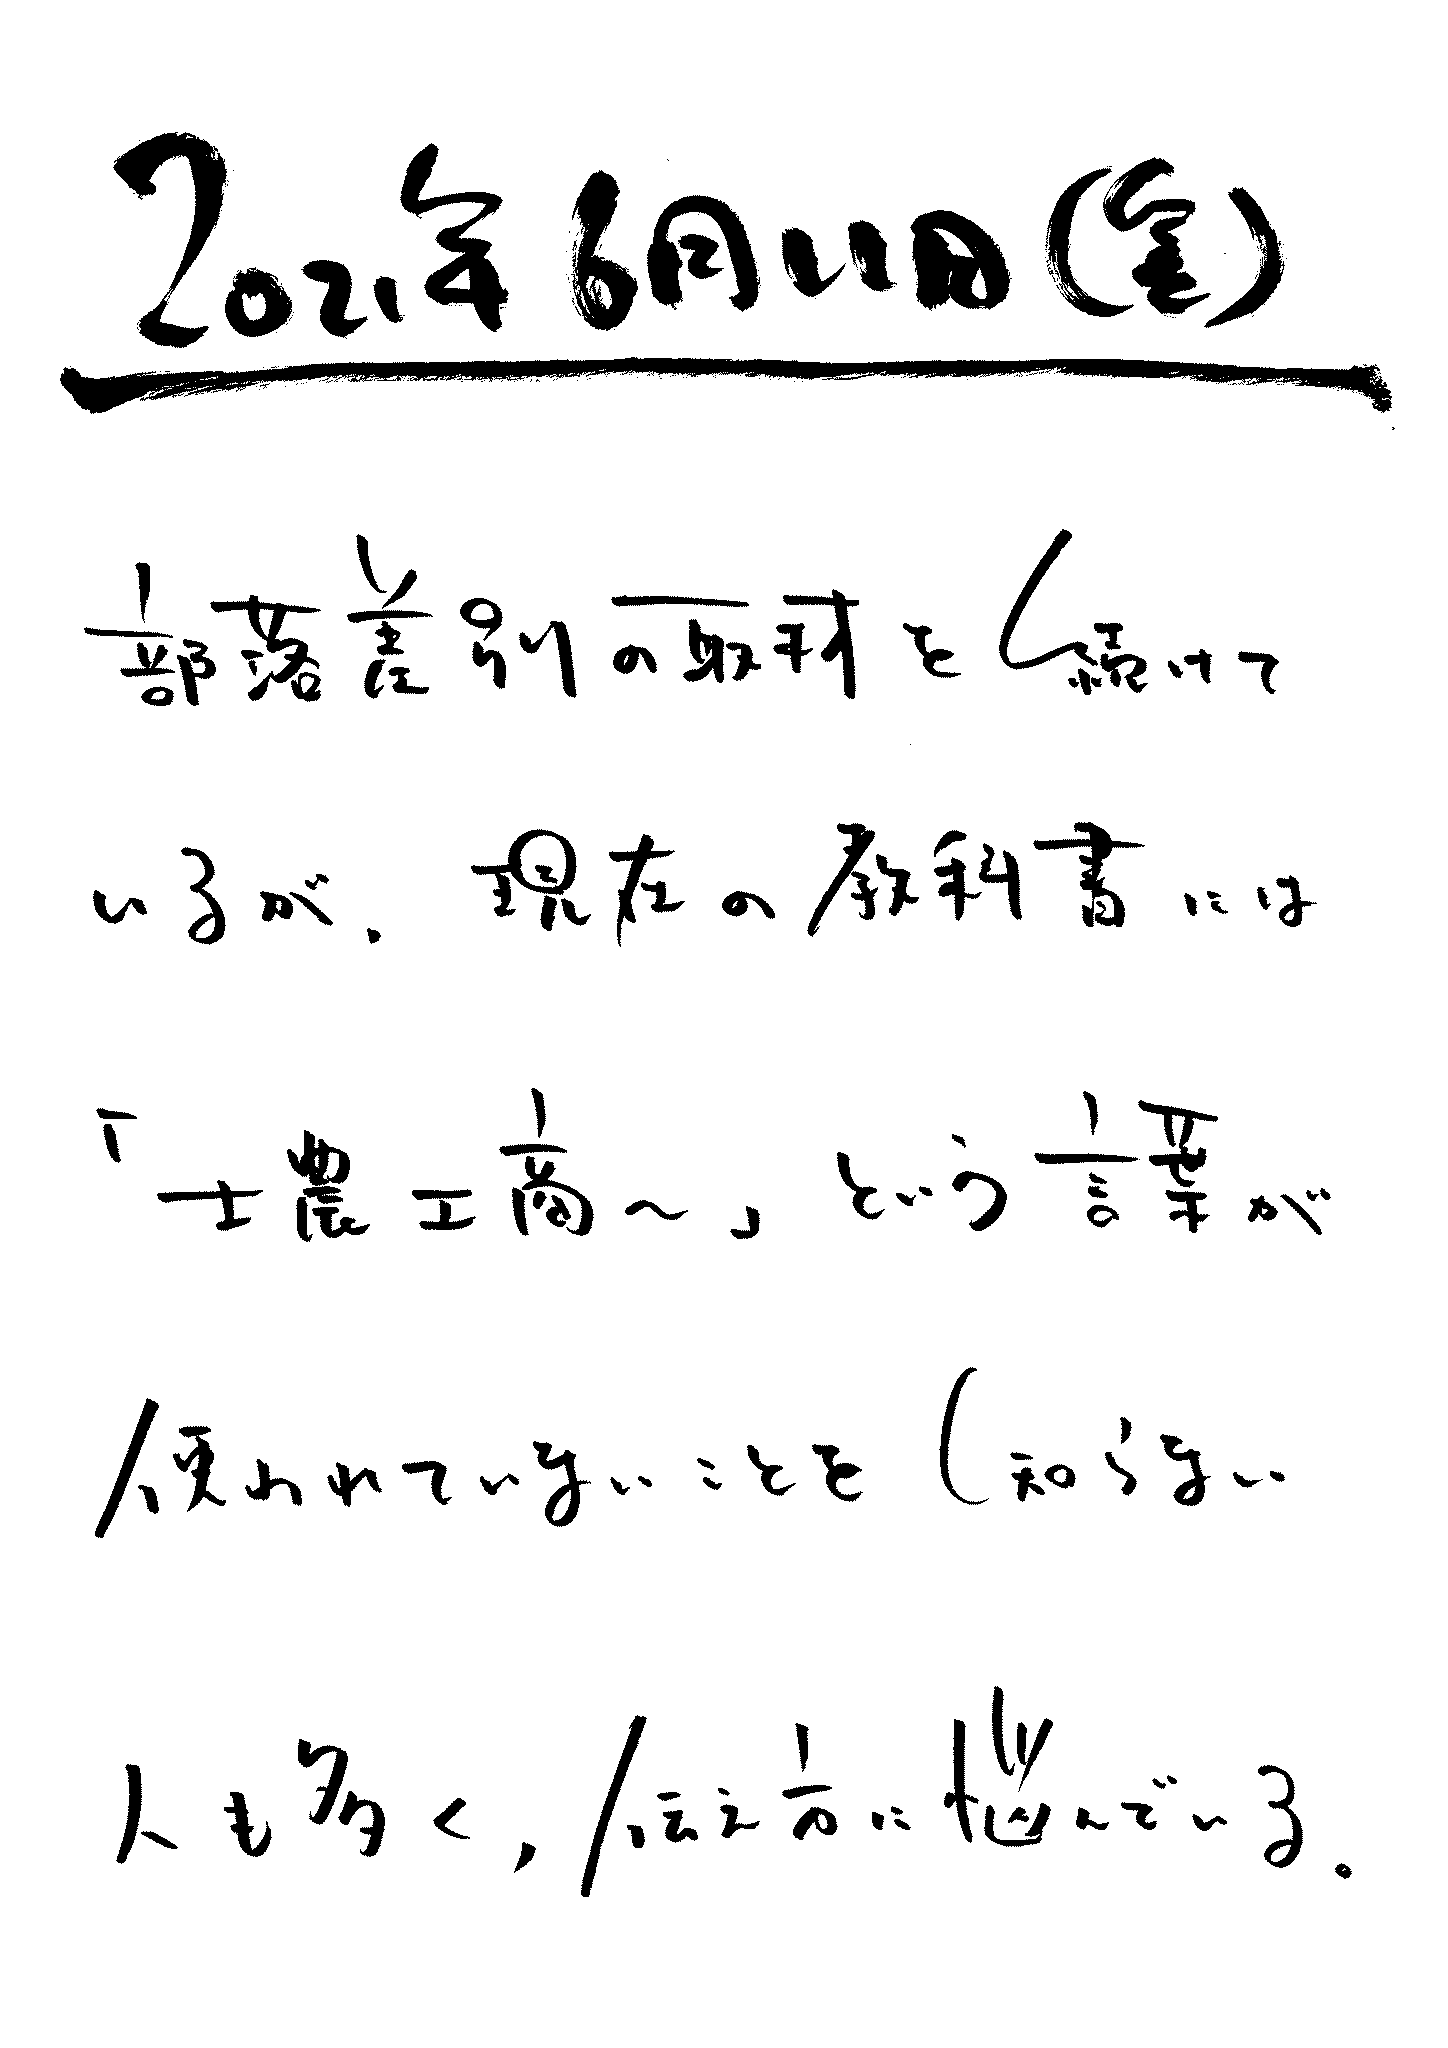 2021年6月11日(金)
部落差別の取材を続けて
いるが、現在の教科書には
「士農工商〜」という言葉が
使われていないことを知らない
人も多く、伝え方に悩んでいる。